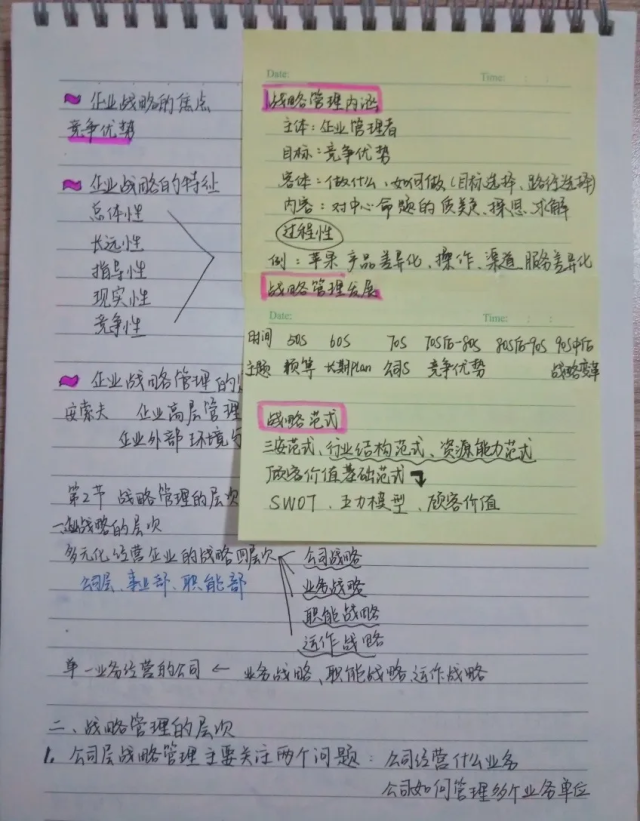 企业战略的焦点
竞争优势
企业战略的特征
总体性
长远性
指导性
现实性
竞争性
企业战略管理的
安索夫 企业高层管理
企业外部环境与
第2节 战略管理的层次
一、战略的层次
多元化经营企业的战略四层次
公司战略
公司层、事业部、职能部
业务战略
职能战略
运作战略
单一业务经营的公司 ← 业务战略、职能战略、运作战略
二、战略管理的层次
1. 公司层战略管理主要关注两个问题：公司经营什么业务
公司如何管理多个业务单位
Date: Time: : :
战略管理内涵
主体：企业管理者
目标：竞争优势
客体：做什么、如何做（目标选择、路径选择）
内容：对中心命题的质疑、探思、求解
过程性
例：苹果 产品差异化、操作、渠道、服务差异化
战略管理发展
Date: Time: : :
时间 50S 60S 70S 70S后-80S 80S后-90S 90S中后
主题 预算 长期Plan 公司S 竞争优势 战略变革
战略范式
三安范式、行业结构范式、资源能力范式
顾客价值基础范式
SWOT、五力模型、顾客价值